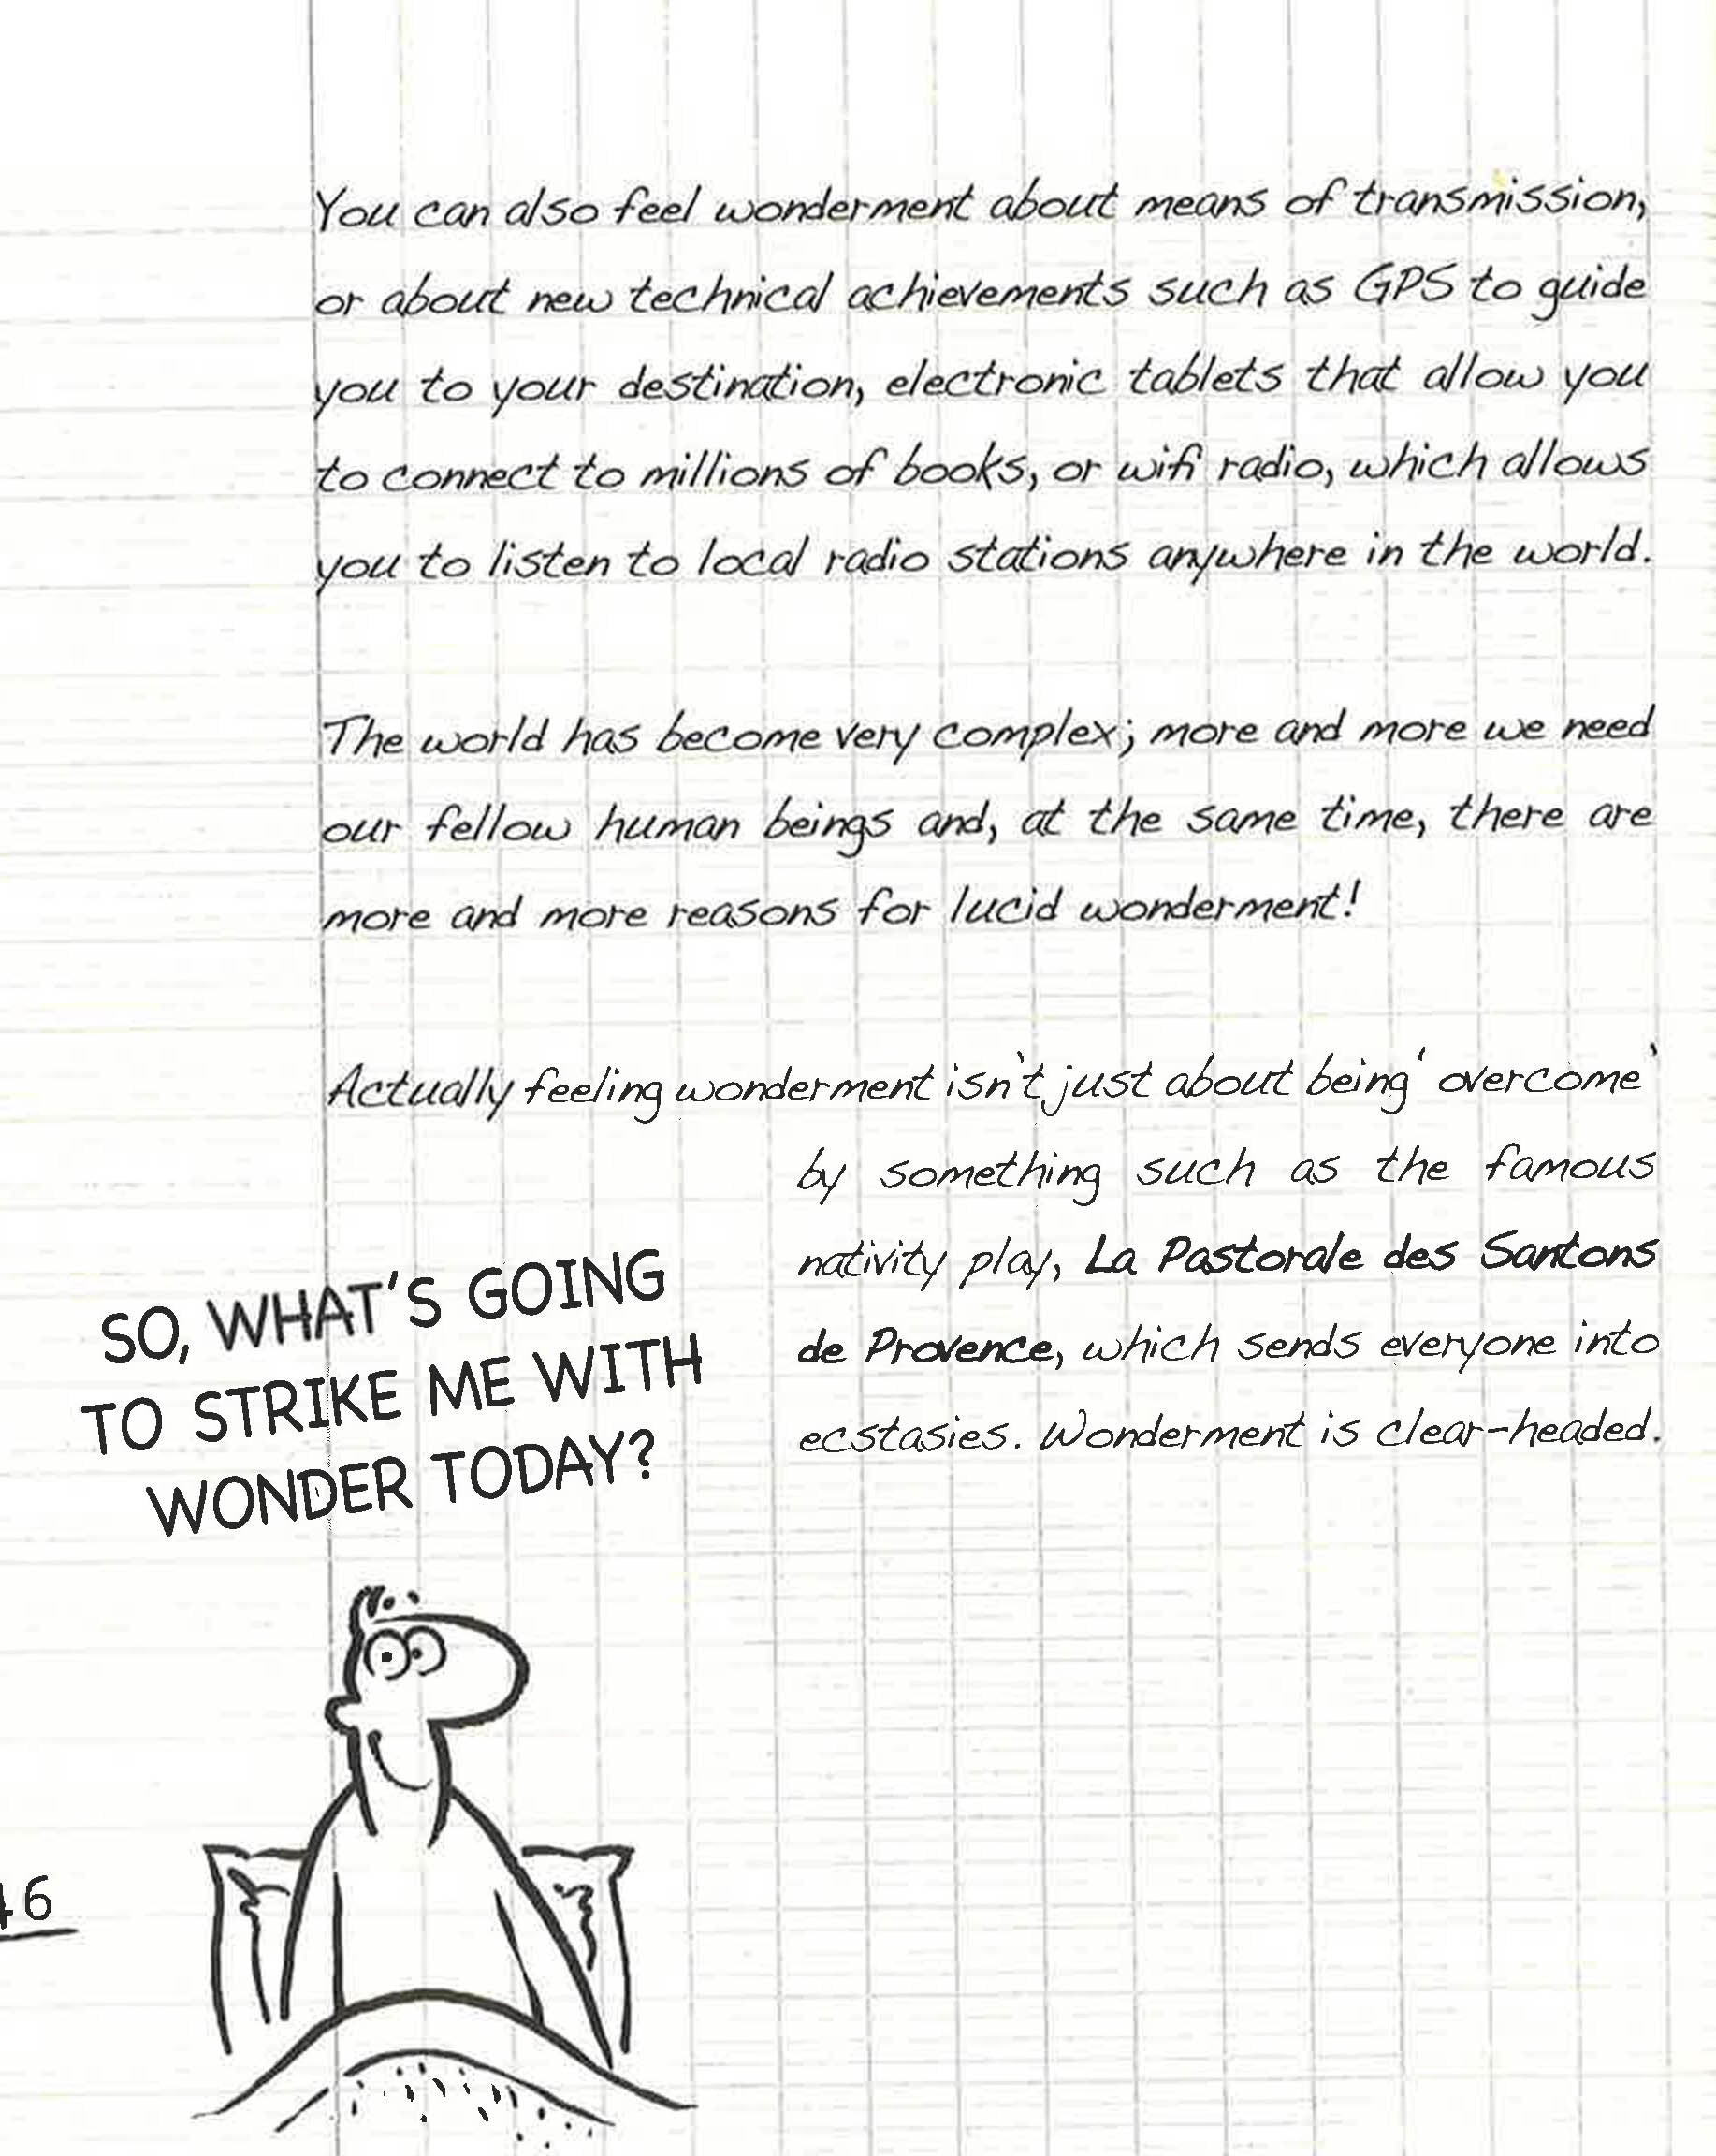 You can also feel wonderment about means of transmission,
or about new technical achievements such as GPS to guide
you to your destination, electronic tablets that allow you
to connect to millions of books, or wifi radio, which allows
you to listen to local radio stations anywhere in the world.
The world has become very complex; more and more we need
our fellow human beings and, at the same time, there are
more and more reasons for lucid wonderment!
Actually feeling wonderment isn't just about being 'overcome'
by something such as the famous
nativity play, La Pastorale des Santons
de Provence, which sends everyone into
ecstasies. Wonderment is clear-headed.
SO, WHAT'S GOING
TO STRIKE ME WITH
WONDER TODAY?
46